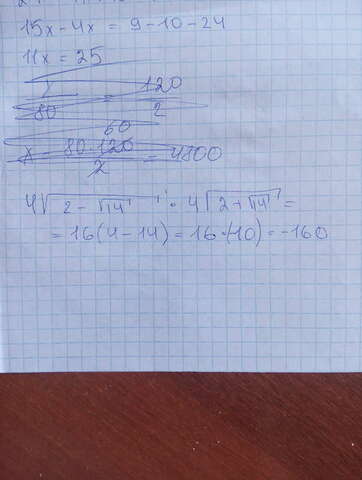 15x - 4x = 9 - 10 - 24
11x = 25
x/80 = 120/2
60
x = 80·120/2 = 4800
4√(2 - √14) · 4√(2 + √14) =
= 16(4 - 14) = 16·(-10) = -160